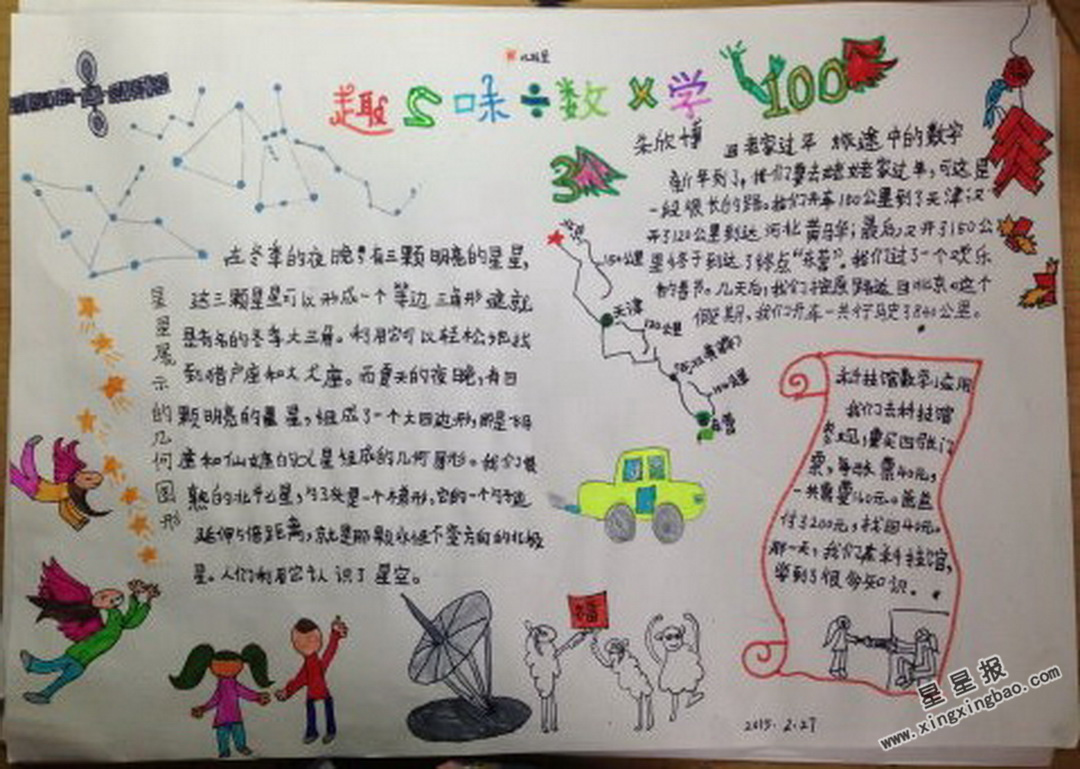 北极星
趣味÷数×学
100
朱欣博
回老家过年 旅途中的数字
新年到了,我们要去老家过年,可这是
一段很长的路。我们开车100公里到了天津;又
开了120公里到达河北黄骅;最后,又开了150公
里终于到达了终点“东营”。我们过了一个欢乐
的春节。几天后,我们按原路返回北京。这个
假期,我们开车一共行驶了840公里。
3
北京
150公里
天津
120公里
东营
星星展示的几何图形
在冬季的夜晚,有三颗明亮的星星,
这三颗星星可以形成一个等边三角形,这就
是有名的冬季大三角。利用它可以轻松地找
到猎户座和大犬座。而夏天的夜晚,有四
颗明亮的星星,组成了一个大四边形,
座和仙女座的
熟的北斗七星,勺子就是一个梯形,它的一个勺子边
延伸5倍距离,就是那颗永恒不变方向的北极
星。人们利用它认识了星空。
科技馆数学应用
我们去科技馆
参观,要买四张门
票,每张票40元,
一共需要160元。爸爸
付了200元,找回40元。
那一天,我们在科技馆,
学到了很多知识。
福
2015.2.27
星星报
www.xingxingbao.com